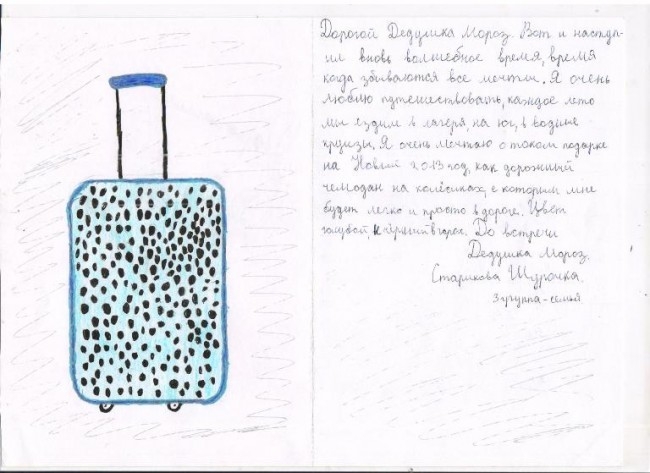 Дорогой Дедушка Мороз. Вот и наступ-
ил вновь волшебное время, время
когда збываются все мечты. Я очень
люблю путешествовать, каждое лето
мы ездим в лагеря, на юг, в водные
круизы. Я очень мечтаю о таком подарке
на Новый 2013 год, как дорожный
чемодан на колёсиках, с которым мне
будет легко и просто в дороге. Цвет
голубой, в чёрный горох. До встречи
Дедушка Мороз.
Старикова Шурочка.
3 группа-семья